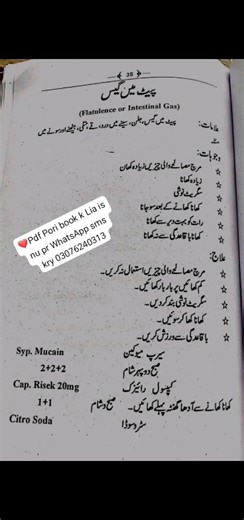 ﴾ 38 ﴿
پیٹ میں گیس
(Flatulence or Intestinal Gas)
علامات: پیٹ میں گیس، بھٹن، سینے میں درد، قے، ہچکی، بیٹھنے اور سونے میں
وجوہات:
☆ مرچ مصالحے والی چیزیں زیادہ کھانا
☆ زیادہ کھانا
☆ سگریٹ نوشی
☆ کھانا کھانے کے بعد سو جانا
☆ رات کو بہت دیر سے کھانا
☆ کھانا باقاعدگی سے نہ کھانا
❤Pdf Pori book k Lia is
nu pr WhatsApp sms
kry 03076240313
علاج:
☆ مرچ مصالحے والی چیزیں استعمال نہ کریں۔
☆ کم کھائیں پر بار بار کھائیں۔
☆ سگریٹ نوشی بند کر دیں۔
☆ کھانا کھا کر سوئیں۔
☆ باقاعدگی سے ورزش کریں۔
Syp. Mucain سیرپ میوکین
2+2+2 صبح دوپہر شام
Cap. Risek 20mg کیپسول رائیزک
1+1 کھانا کھانے سے آدھا گھنٹہ پہلے کھائیں۔ صبح و شام
Citro Soda سٹرو سوڈا